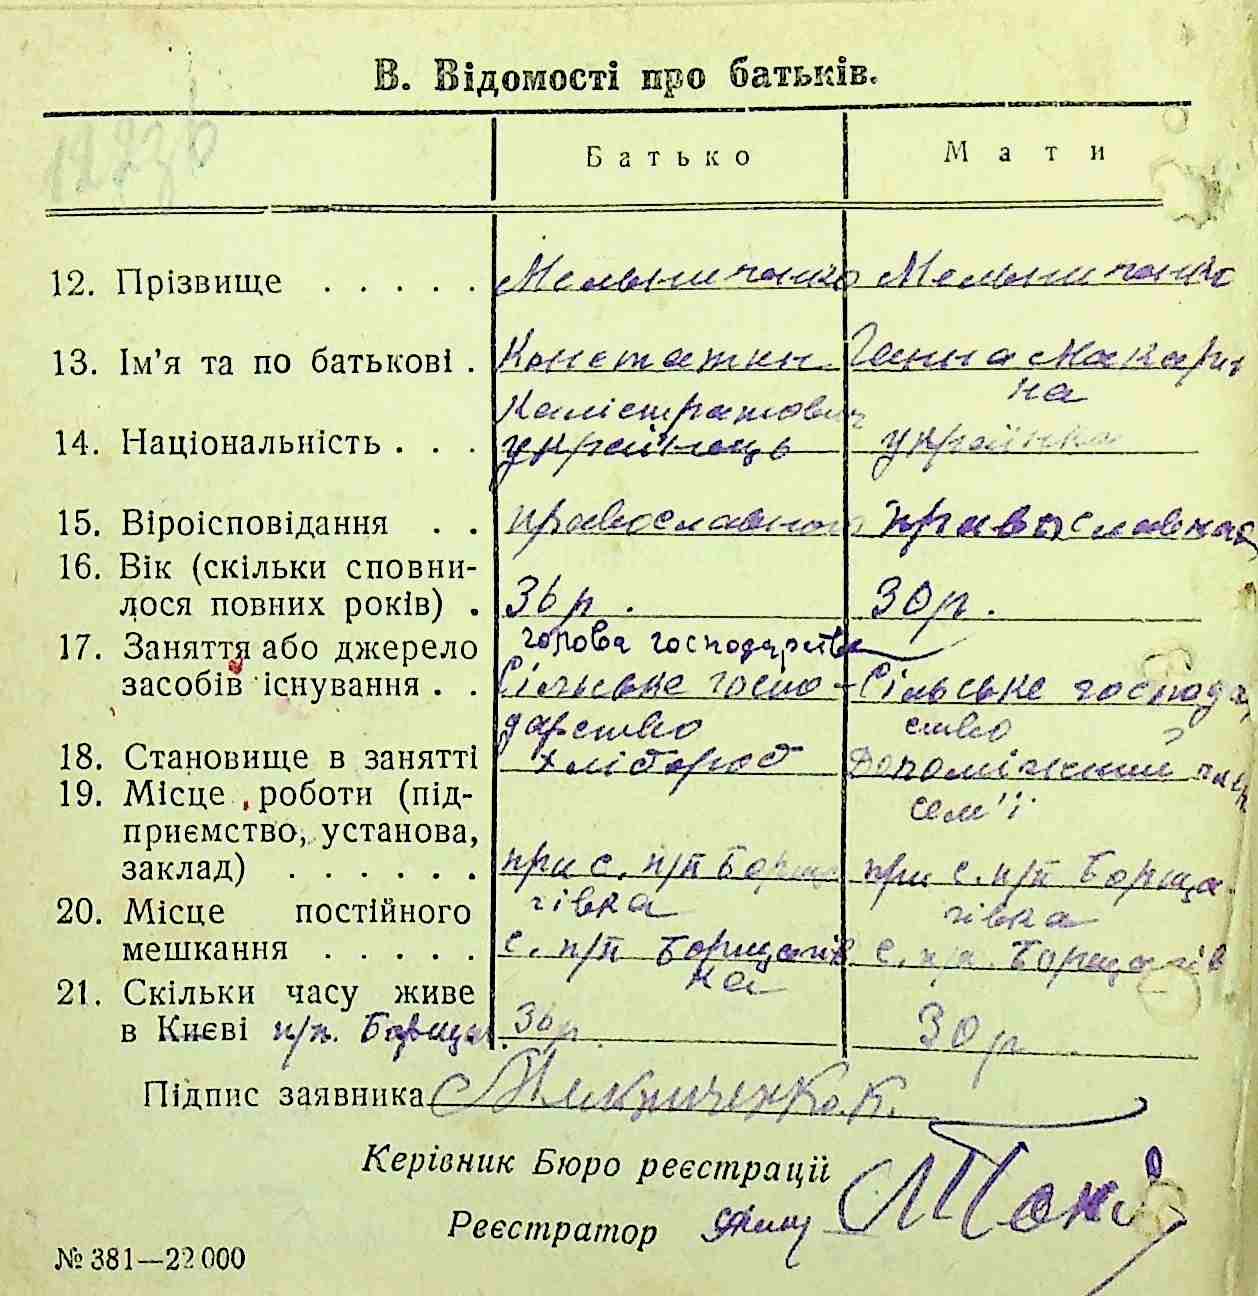 В. Відомості про батьків.
Батько Мати
12. Прізвище . . . . . Мельниченко Мельниченко
13. Ім'я та по батькові . Констатин Ганна Макарів
Калістратович на
14. Національність . . . українець українка
15. Віроісповідання . . православного православная
16. Вік (скільки сповни-
лося повних років) . 36 р. 30 р.
17. Заняття або джерело голова господарства
засобів існування . . Сільське госпо- Сільське господар
дарство ство
18. Становище в занятті хлібороб Допоміжний член
19. Місце роботи (під- сем'ї
приємство, установа,
заклад) . . . . . . при с. п/п Борща при с. п/п Борща
гівка гівка
20. Місце постійного
мешкання . . . . . с. п/п Борщагів с. п/п Борщагів
ка
21. Скільки часу живе
в Києві п/п. Борщаг. 36 р. 30 р
Підпис заявника Мельниченко К.
Керівник Бюро реєстрації
Реєстратор
№ 381—22 000